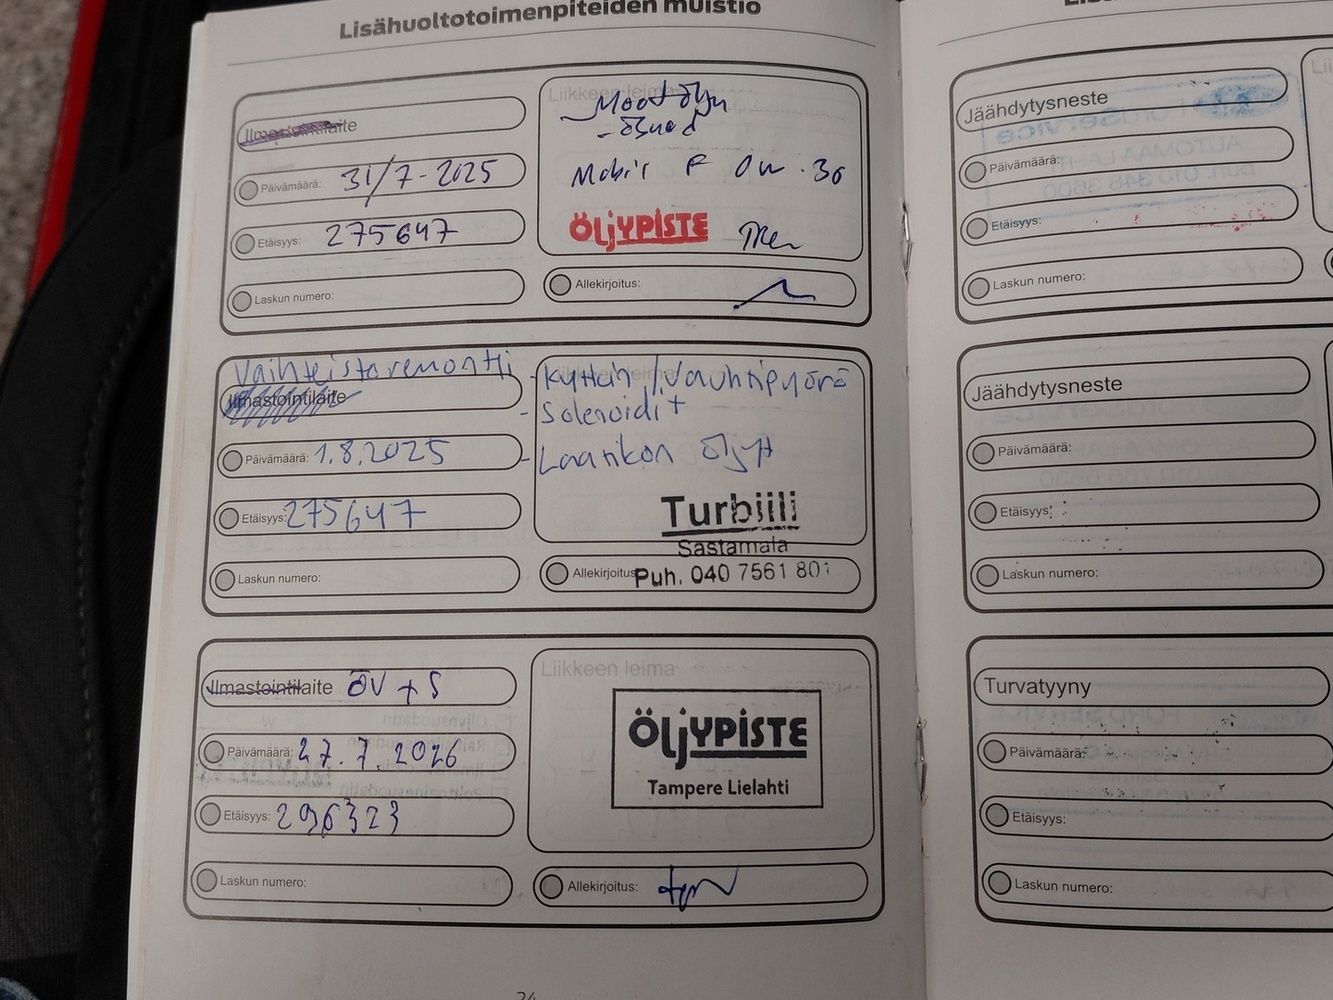 Lisähuoltotoimenpiteiden muistio
Ilmastointilaite
Päivämäärä: 31/7-2025
Etäisyys: 275647
Laskun numero:
Liikkeen leima
Mobil F 0w-30
ÖLJYPISTE
Allekirjoitus:
Vaihteistoremontti
Ilmastointilaite
Päivämäärä: 1.8.2025
Etäisyys: 275647
Laskun numero:
Liikkeen leima
- Kytkin / Vauhtipyörä
- Solenoidit
- Laatikon öljyt
Turbiili
Sastamala
Puh. 040 7561 801
Allekirjoitus:
Ilmastointilaite ÖV + S
Päivämäärä: 27.7.2026
Etäisyys: 296323
Laskun numero:
Liikkeen leima
ÖLJYPISTE
Tampere Lielahti
Allekirjoitus:
24
Jäähdytysneste
Päivämäärä:
Etäisyys:
Laskun numero:
Jäähdytysneste
Päivämäärä:
Etäisyys:
Laskun numero:
Turvatyyny
Päivämäärä:
Etäisyys:
Laskun numero: